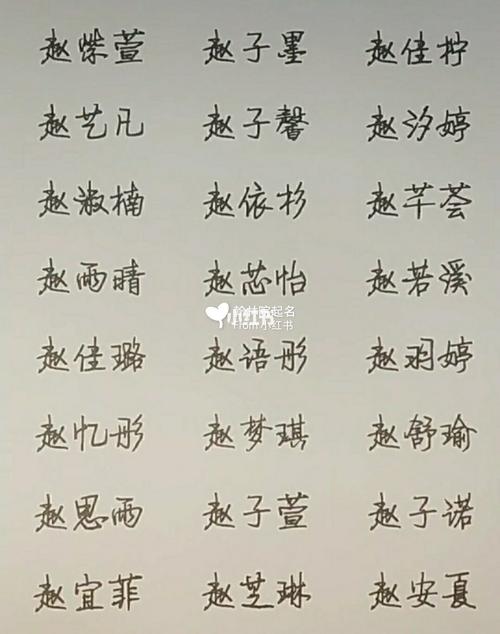 赵紫萱 赵子墨 赵佳柠
赵艺凡 赵子馨 赵汐婷
赵淑楠 赵依杉 赵芊荟
赵雨晴 赵芯怡 赵若溪
起名
小红书
From小红书
赵佳璐 赵语彤 赵羽婷
赵忆彤 赵梦琪 赵舒瑜
赵思雨 赵子萱 赵子诺
赵宜菲 赵芝琳 赵安夏